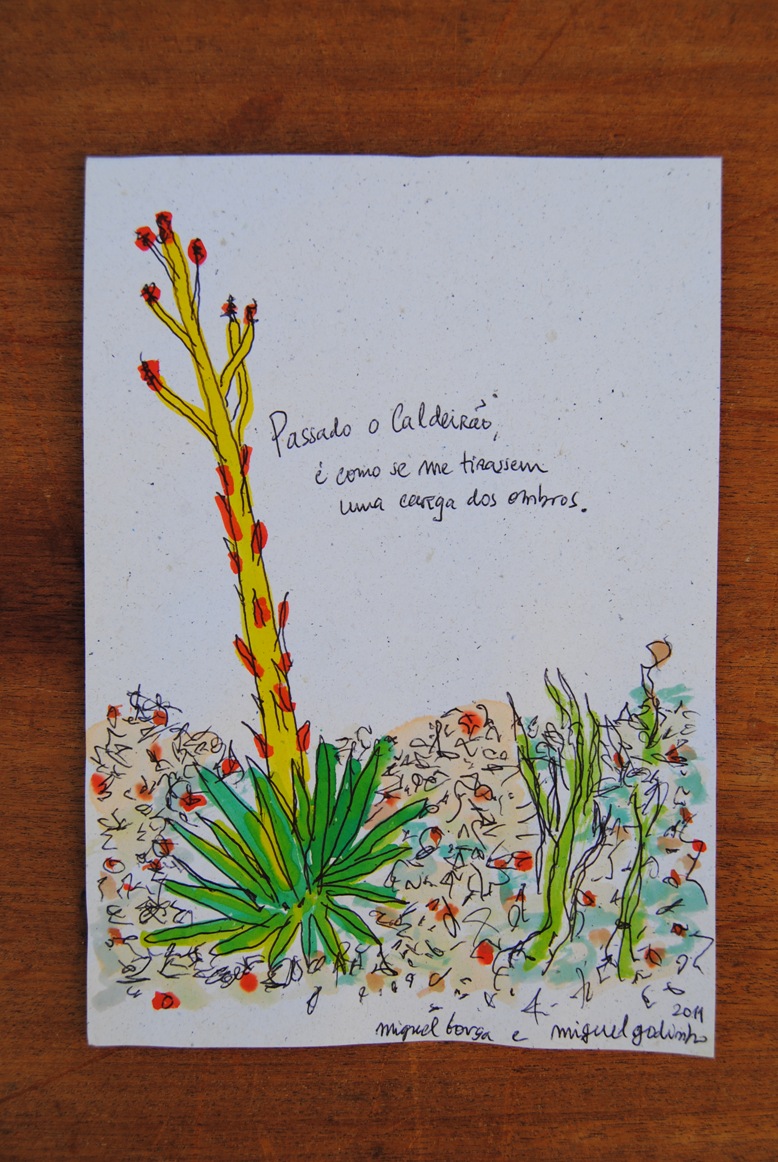 Passado o Caldeirão,
é como se me tirassem
uma carga dos ombros.
2011
miguel e miguel godinho